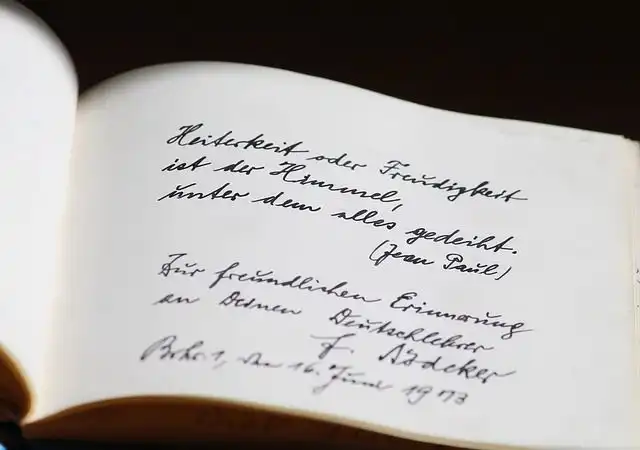 Heiterkeit oder Freudigkeit
ist der Himmel,
unter dem alles gedeiht.
(Jean Paul)
Zur freundlichen Erinnerung
an Deinen Deutschlehrer
F. Rödeker
1, den 16. Juni 1973